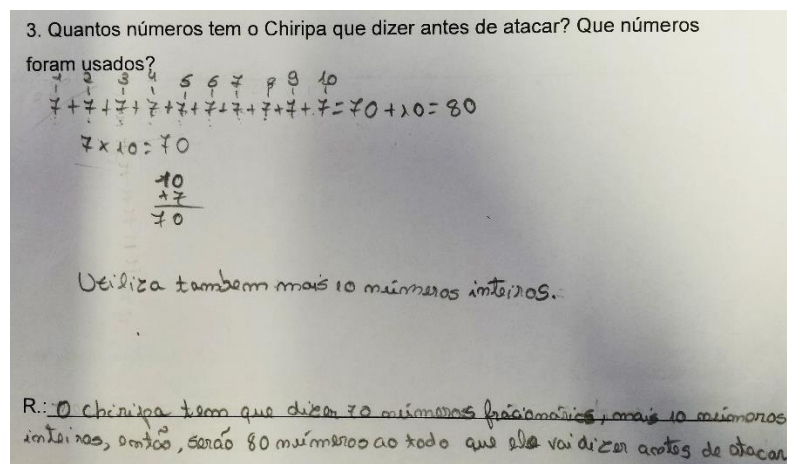 3. Quantos números tem o Chiripa que dizer antes de atacar? Que números
foram usados?
1 2 3 4 5 6 7 8 9 10
7+7+7+7+7+7+7+7+7+7=70+10=80
7x10=70
10
+7
70
Utiliza tambem mais 10 números inteiros.
R.: O Chiripa tem que dizer 70 números fracionários, mais 10 números
inteiros, então, serão 80 números ao todo que ele vai dizer antes de atacar